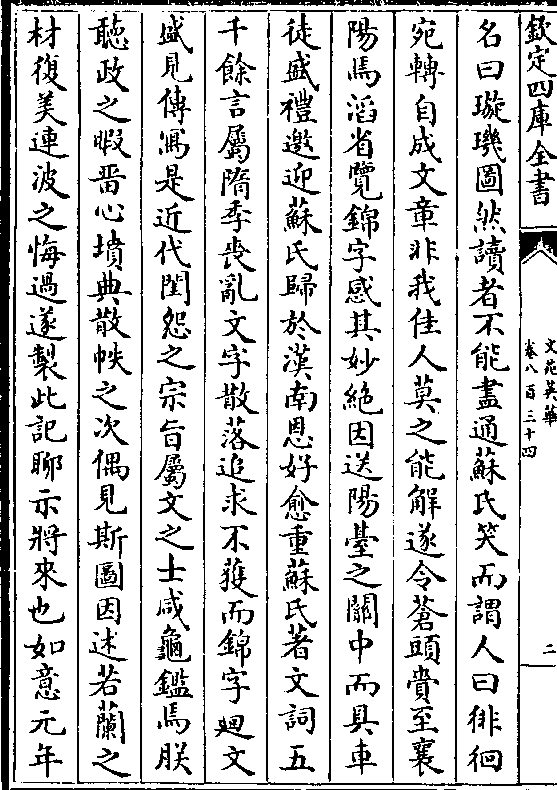 欽定四庫全書
文苑英華
卷八百三十四
二
名曰璇璣圖然讀者不能盡通蘇氏笑而謂人曰徘徊
宛轉自成文章非我佳人莫之能解遂令蒼頭賫至襄
陽焉滔省覽錦字感其妙絶因送陽臺之關中而具車
徒盛禮邀迎蘇氏歸於漢南恩好愈重蘇氏著文詞五
千餘言屬隋季喪亂文字散落追求不獲而錦字廻文
盛見傳冩是近代閨怨之宗旨屬文之士咸龜鑑焉朕
聽政之暇畱心墳典散帙之次偶見斯圖因述若蘭之
材復美連波之悔過遂製此記聊示將來也如意元年